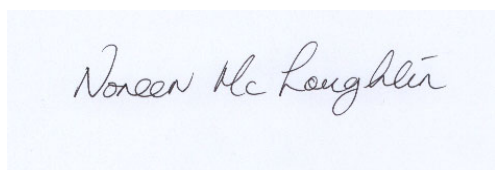 Noreen Mc Loughlin